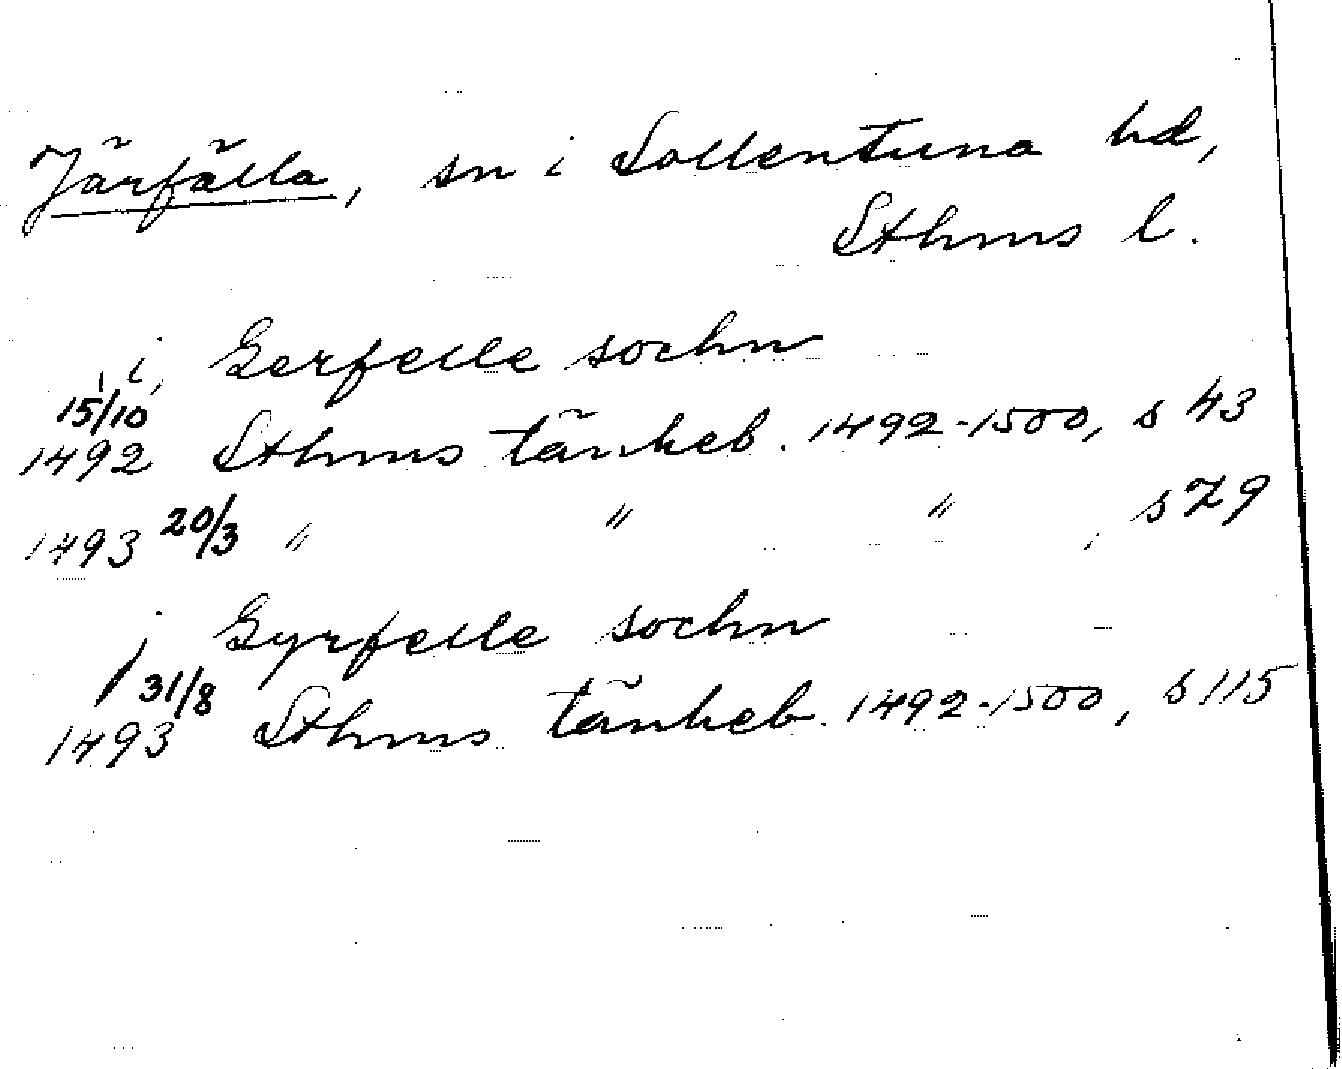 Järfälla, sn i Sollentuna hd,
Sthms l.
i Gerfelle sochn
15/10
1492 Sthms tänkeb. 1492-1500, s 43
1493 20/3 " " " , s 79
j Gyrfelle sochn
31/8
1493 Sthms tänkeb. 1492-1500, s 115